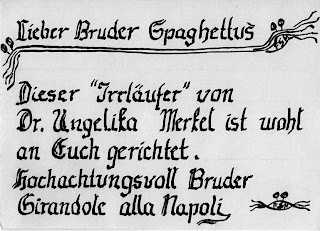 Lieber Bruder Spaghettus
Dieser "Irrläufer" von
Dr. Angelika Merkel ist wohl
an Euch gerichtet.
Hochachtungsvoll Bruder
Girandole alla Napoli